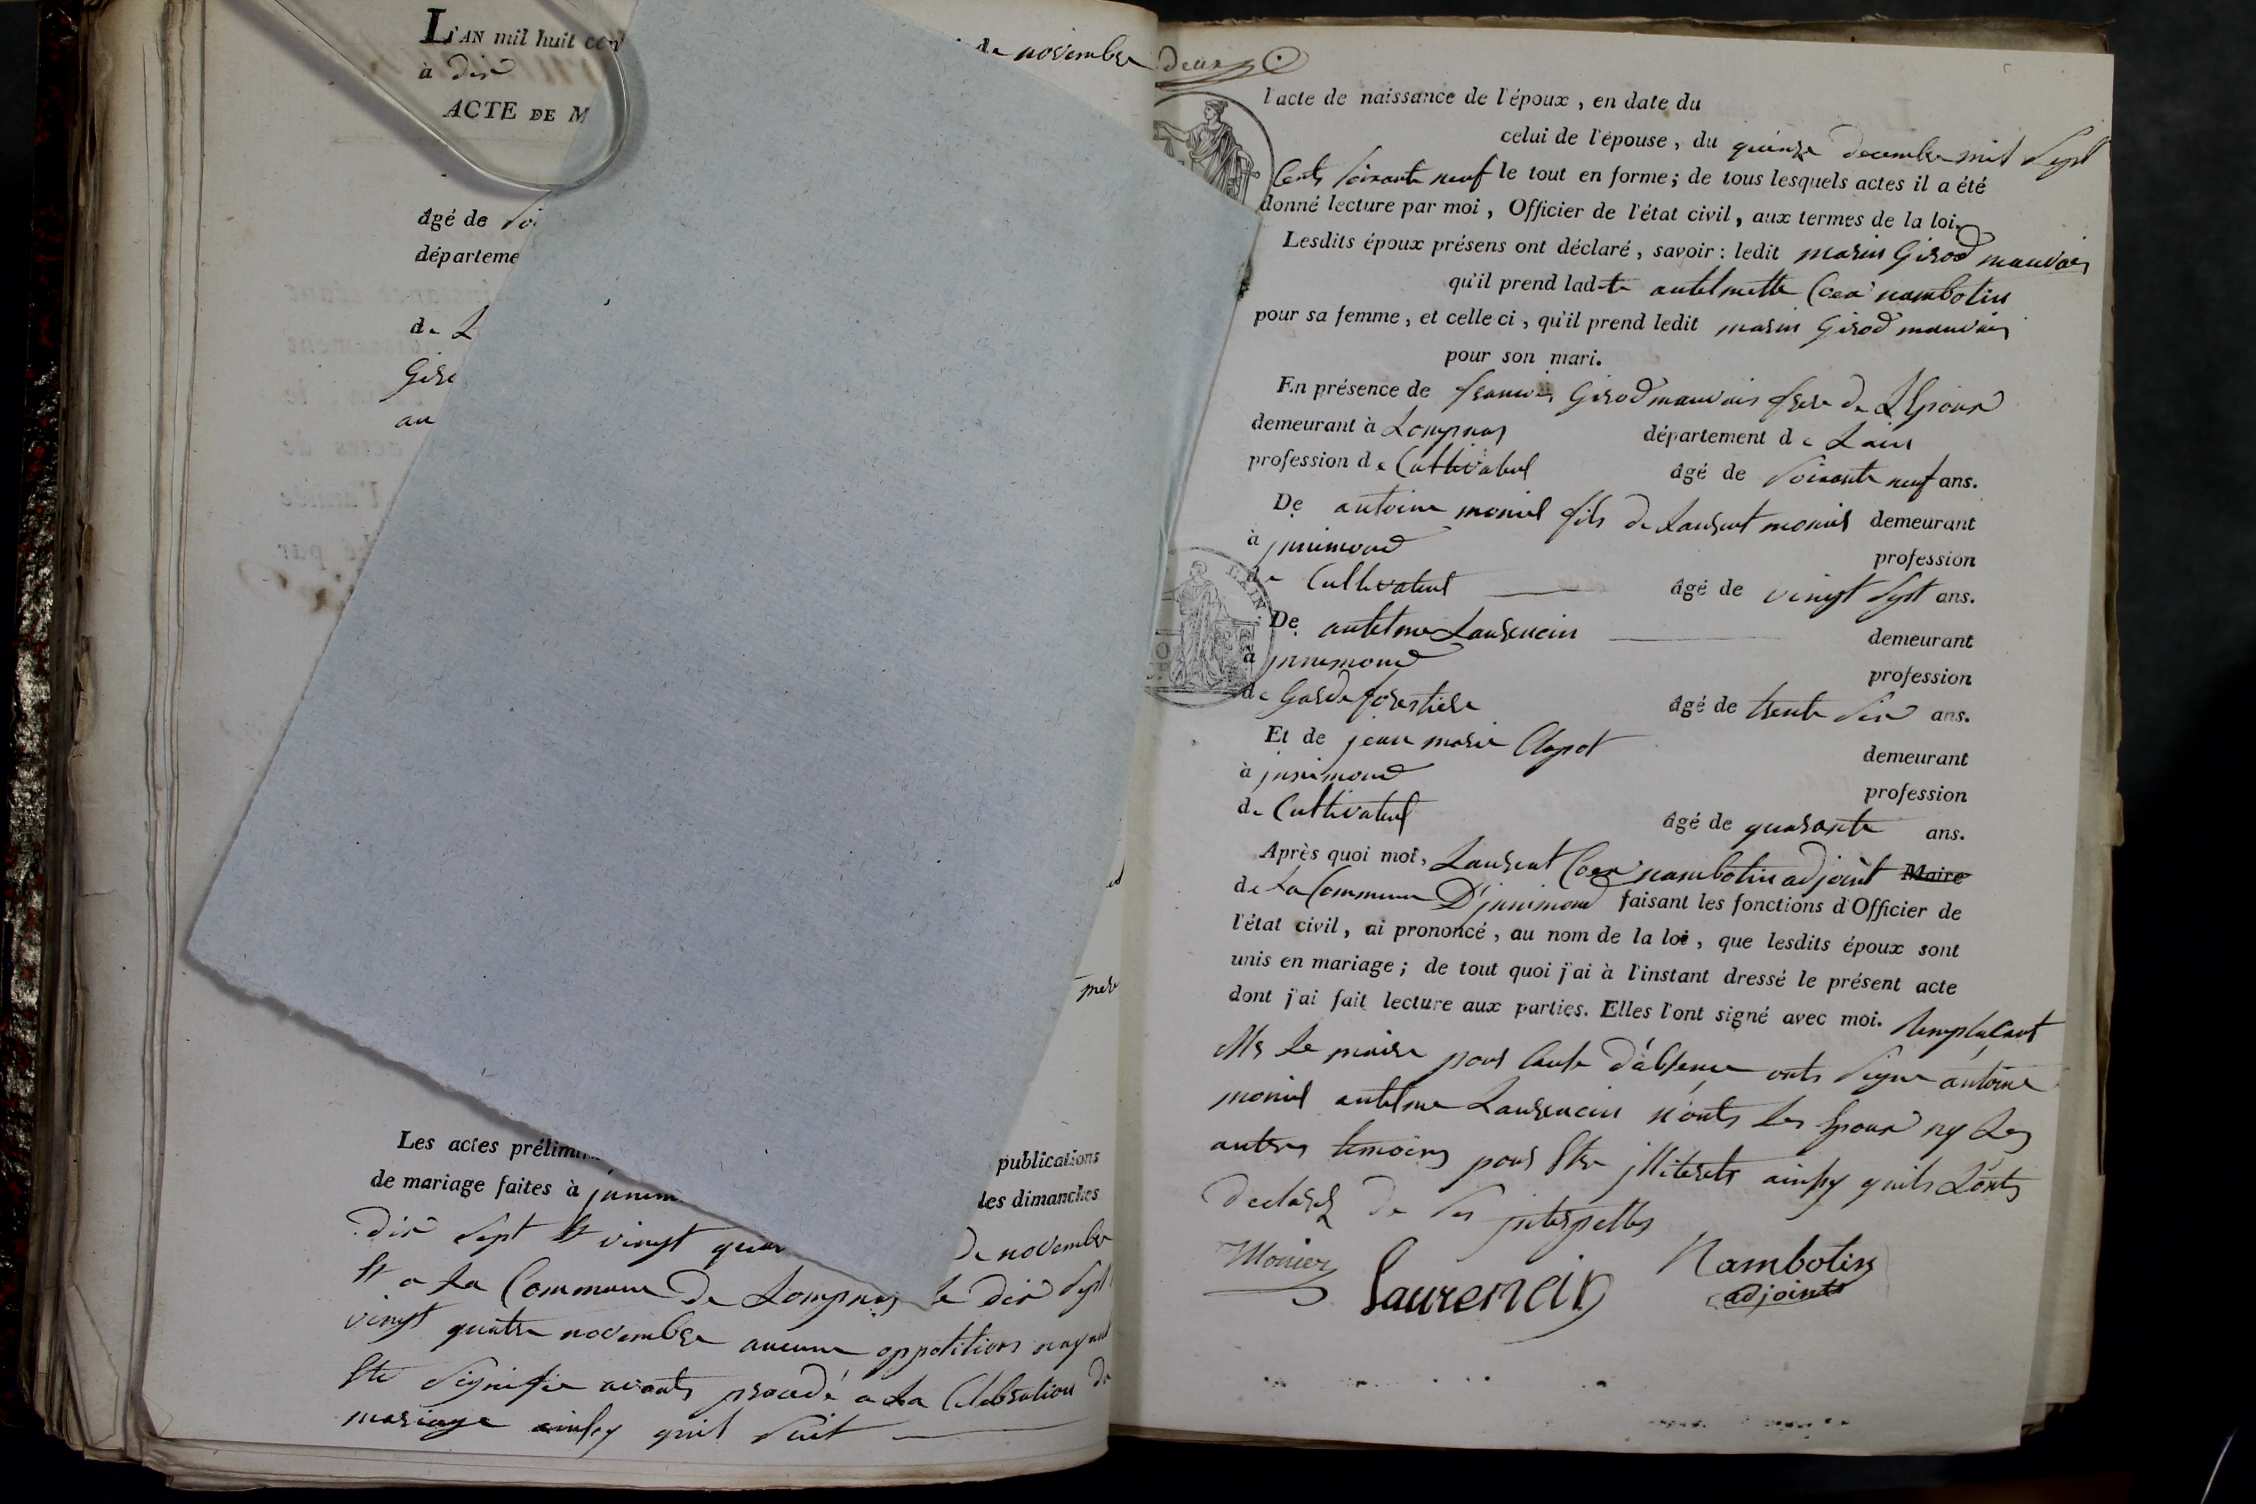 L'AN mil huit cen
de novembre
à dix
ACTE DE M
âgé de soi
départeme
de L
Giro
au
mer
Les actes prélimi
publications
de mariage faites à jnnim
les dimanches
dix sept Et vingt quatr
De novembre
Et a La Commune De Lompnas le dix sept
vingt quatre novembre aucune oppotition nayant
Ete Signifie avonts procedé a La Celebration du
mariage ainsy quil Suit
deux
l'acte de naissance de l'époux, en date du
celui de l'épouse, du quinze decembre mil Sept
Cents Soixante neuf le tout en forme; de tous lesquels actes il a été
donné lecture par moi, Officier de l'état civil, aux termes de la loi.
Lesdits époux présens ont déclaré, savoir: ledit marin Girod mauvais
qu'il prend lad-te antelmette Coex nambotin
pour sa femme, et celle ci, qu'il prend ledit marin Girod mauvais
pour son mari.
En présence de francois Girod mauvais frere de LEpoux
demeurant à Lompnas département de Lain
profession de Cultivateur âgé de Soixante neuf ans.
De antoine monier fils de Laurent monier demeurant
à jnnimond
profession
de Cultivateur âgé de vingt Sept ans.
De antelme Laurencin demeurant
à jnnimond
profession
de Garde forestiere âgé de trente Six ans.
Et de jean marie Clapot
demeurant
à jnnimond
profession
de Cultivateur âgé de quarante ans.
Après quoi moi, Laurent Coex nambotin adjoint Maire
de La Commune D'jnnimond faisant les fonctions d'Officier de
l'état civil, ai prononcé, au nom de la loi, que lesdits époux sont
unis en mariage; de tout quoi j'ai à l'instant dressé le présent acte
dont j'ai fait lecture aux parties. Elles l'ont signé avec moi. Remplacant
Mr Le maire pour Cause d'absence onts Signe antoine
monier antelme Laurencin n'onts Les Epoux ny Les
autres temoins pour Etre jlliterets ainsy quils Lonts
declarez De Ses jnterpelles
Monier
Laurencin
Nambotin
adjoint
LAIN